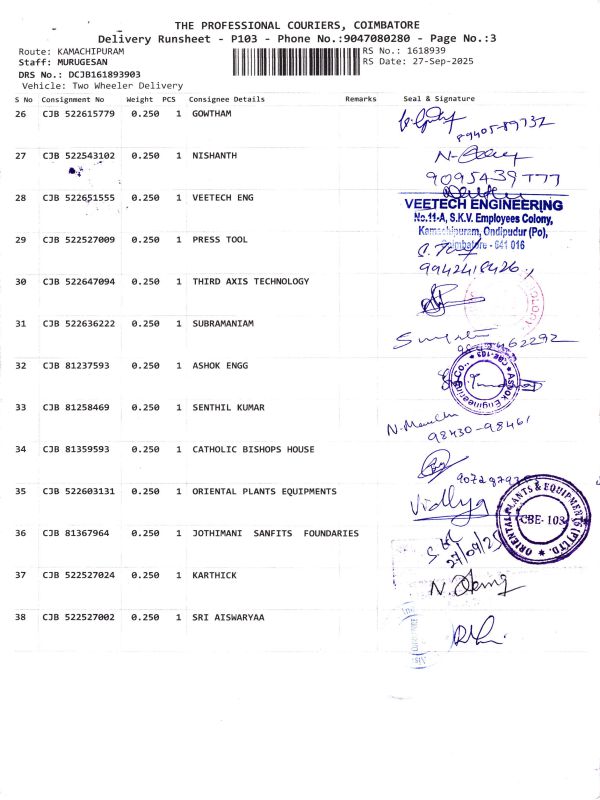 THE PROFESSIONAL COURIERS, COIMBATORE
Delivery Runsheet - P103 - Phone No.:9047080280 - Page No.:3
Route: KAMACHIPURAM RS No.: 1618939
Staff: MURUGESAN RS Date: 27-Sep-2025
DRS No.: DCJB161893903
Vehicle: Two Wheeler Delivery
S No Consignment No Weight PCS Consignee Details Remarks Seal & Signature
26 CJB 522615779 0.250 1 GOWTHAM
89405-89732
27 CJB 522543102 0.250 1 NISHANTH
9095439777
28 CJB 522651555 0.250 1 VEETECH ENG
VEETECH ENGINEERING
No.11-A, S.K.V. Employees Colony,
Kamachipuram, Ondipudur (Po),
Coimbatore - 641 016
29 CJB 522527009 0.250 1 PRESS TOOL
9942418426
30 CJB 522647094 0.250 1 THIRD AXIS TECHNOLOGY
31 CJB 522636222 0.250 1 SUBRAMANIAM
32 CJB 81237593 0.250 1 ASHOK ENGG
Ashok Engineering Co., CBE-103
33 CJB 81258469 0.250 1 SENTHIL KUMAR
98430-98461
34 CJB 81359593 0.250 1 CATHOLIC BISHOPS HOUSE
35 CJB 522603131 0.250 1 ORIENTAL PLANTS EQUIPMENTS
Vidhya
ORIENTAL PLANTS & EQUIPMENTS (P) LTD.
CBE-103
36 CJB 81367964 0.250 1 JOTHIMANI SANFITS FOUNDARIES
27/09/25
37 CJB 522527024 0.250 1 KARTHICK
38 CJB 522527002 0.250 1 SRI AISWARYAA